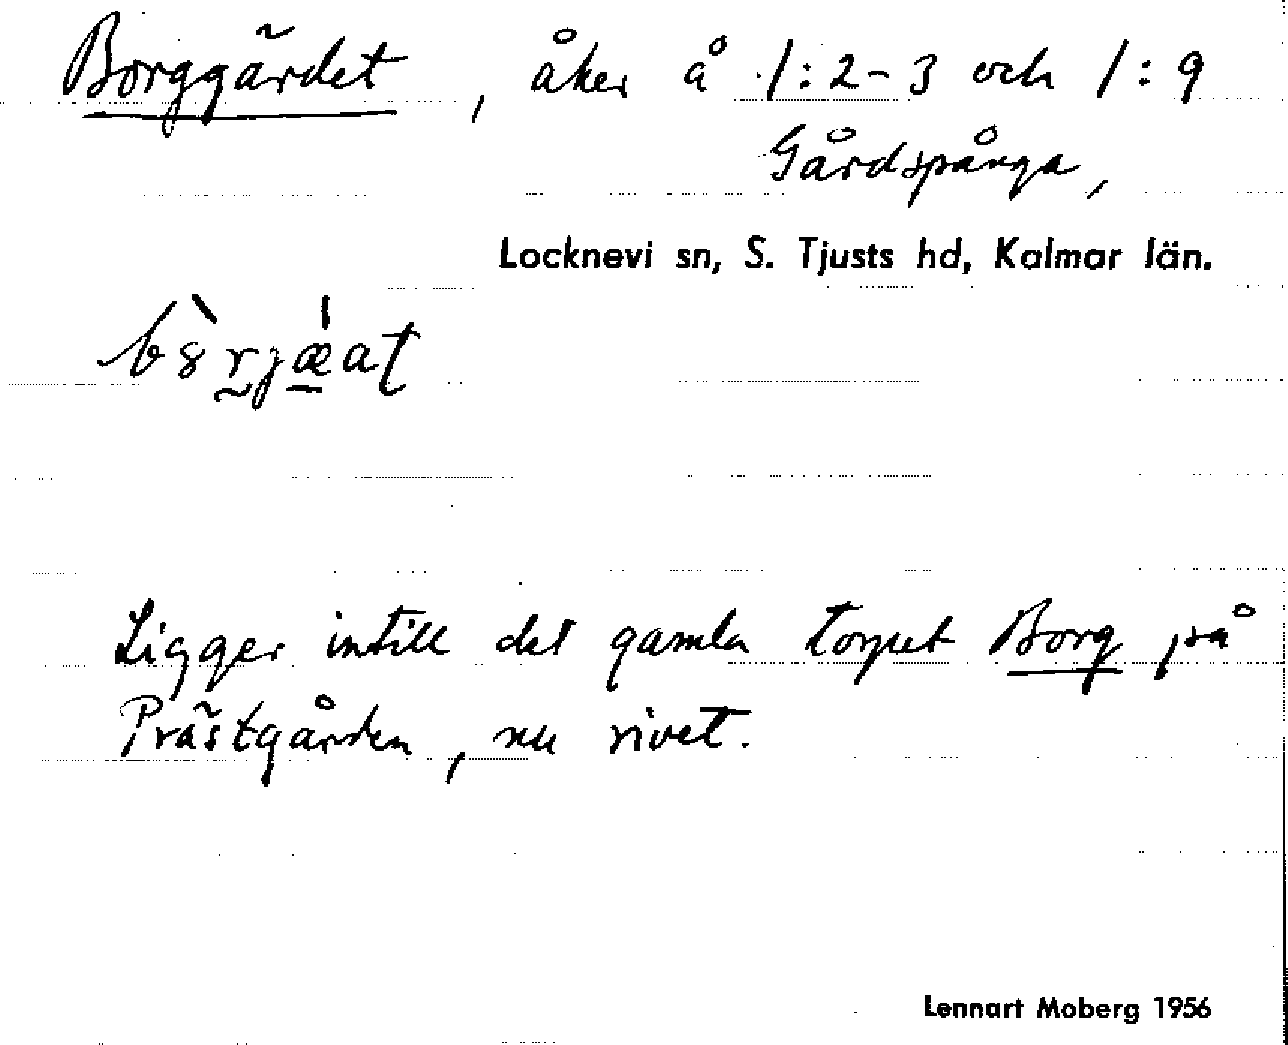 Borggärdet, åker å 1:2-3 och 1:9
Gårdspånga,
Locknevi sn, S. Tjusts hd, Kalmar län.
Ligger intill det gamla torpet Borg på
Prästgården, nu rivet.
Lennart Moberg 1956